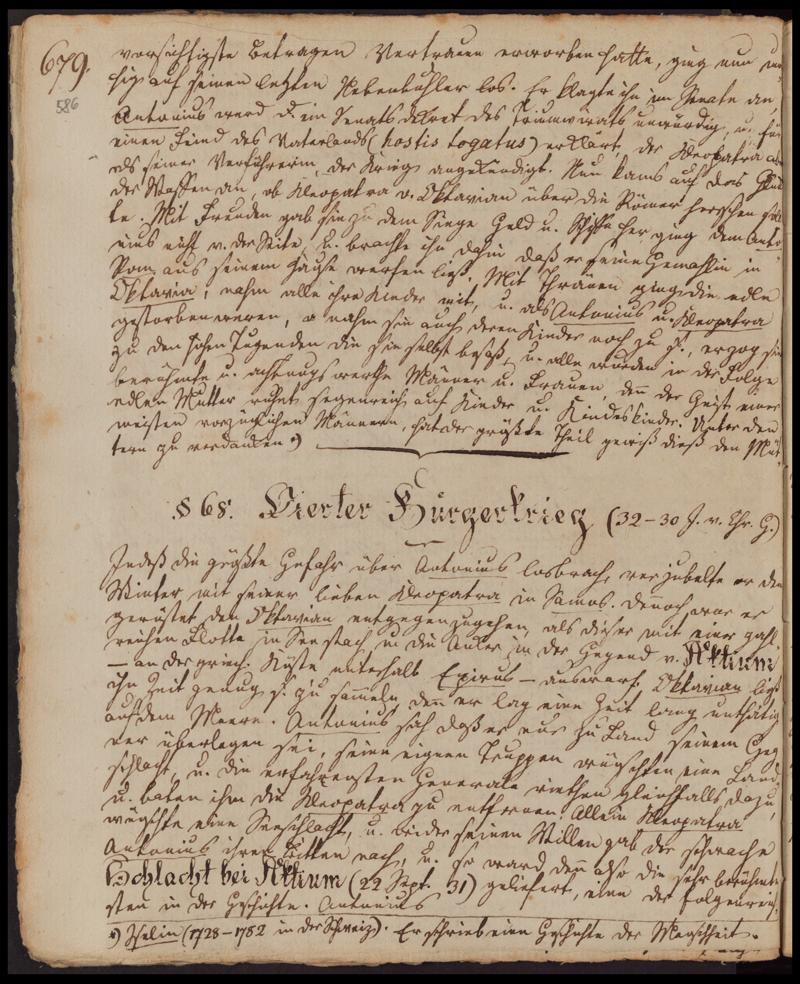 679.
586
vorsichtigste Betragen Vertrauen erworben hatte, ging nun
auf seinen letzten Nebenbuhler los. Er klagte ihn im Senate an,
Antonius ward d. ein Senats dekret des Triumvirats unwürdig, u. für
einen Feind des Vaterlands (hostis togatus) erklärt, der Kleopatra
als seiner Verführerin, der Krieg angekündigt. Nun kams auf das
der Waffen an, ob Kleopatra o. Oktavian über die Römer herschen
te. Mit Freuden gab sie zu dem Siege Geld u. Schiffe her ging dem Anto
nius nicht v. der Seite, u. brachte ihn dahin daß er seine Gemahlin in
Rom aus seinem Hause werfen ließ. Mit Thränen ging die edle
Oktavia, nahm alle ihre Kinder mit, u. als Antonius u. Kleopatra
gestorben waren, nahm sie auch deren Kinder noch zu s., erzog sie
zu den hohen Tugenden die sie selbst besaß, u. alle wurden in der Folge
berühmte u. achtungswerthe Männer u. Frauen, den der Geist einer
edlen Mutter ruht segenreich auf Kinder u. Kindeskinder. Unter den
meisten vorzüglichen Männern, hat der größte Theil gewiß dieß den Müt
tern zu verdanken *)
§ 68. Vierter Bürgerkrieg (32–30 J. v. Chr. G.)
Indeß die größte Gefahr über Antonius losbrach, verjubelte er den
Winter mit seiner lieben Kleopatra in Samos. Dennoch war er
gerüstet den Oktavian entgegenzugehen, als dieser mit einer zahl
reichen Flotte in See stach, u. die Anker in der Gegend v. Aktium
– an der griech. Küste unterhalb Epirus – auswarf. Oktavian ließ
ihn Zeit genug s. zu sammeln denn er lag eine Zeit lang unthätig
auf dem Meere. Antonius sah daß er nur zu Land seinem Geg
ner überlegen sei, seine eignen Truppen wünschten eine Land
schlacht, u. die erfahrensten Generale riethen gleichfalls dazu,
u. baten ihm die Kleopatra zu entfernen. Allein Kleopatra
wünschte eine Seeschlacht, u. wider seinen Willen gab der schwache
Antonius ihren Bitten nach, u. so ward denn also die sehr berühmte
Schlacht bei Aktium (22 Sept. 31) geliefert, eine der folgenreich
sten in der Geschichte. Antonius
*) Iselin (1728–1782 in der Schweiz). Er schrieb eine Geschichte der Menschheit.